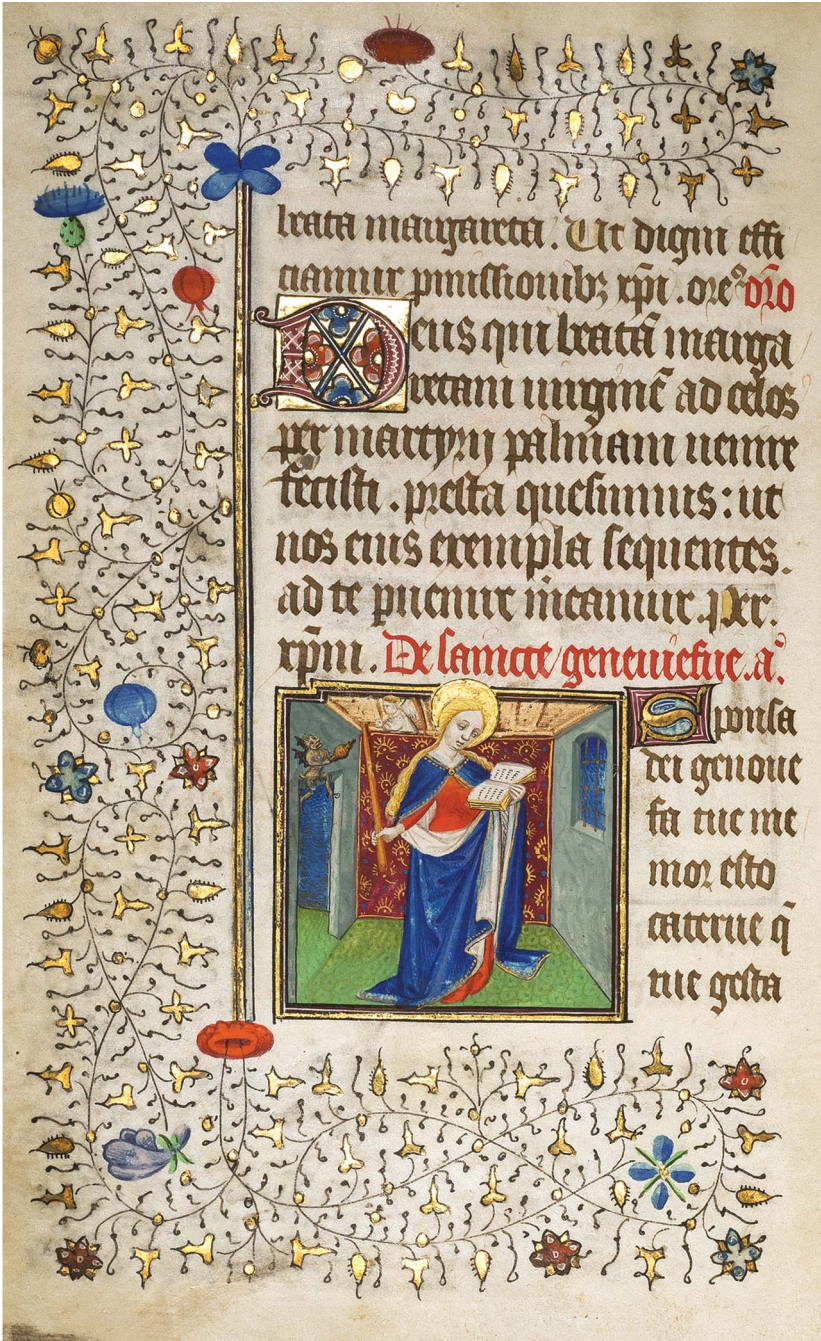 beata margareta. Ut digni effi
ciamur p̄missionibꝫ xp̄i. ore᷒ or̄o
Deus qui beatā marga
retam uirginē ad celos
per martyrij palmam uenire
fecisti. presta quesumus: ut
nos eius exempla sequentes.
ad te ꝑuenire mereamur. Per.
xp̄m. De saincte geneuiefue. a᷒.
Sponsa
dei genoue
fa tue me
mor esto
caterue q̄
tue gesta